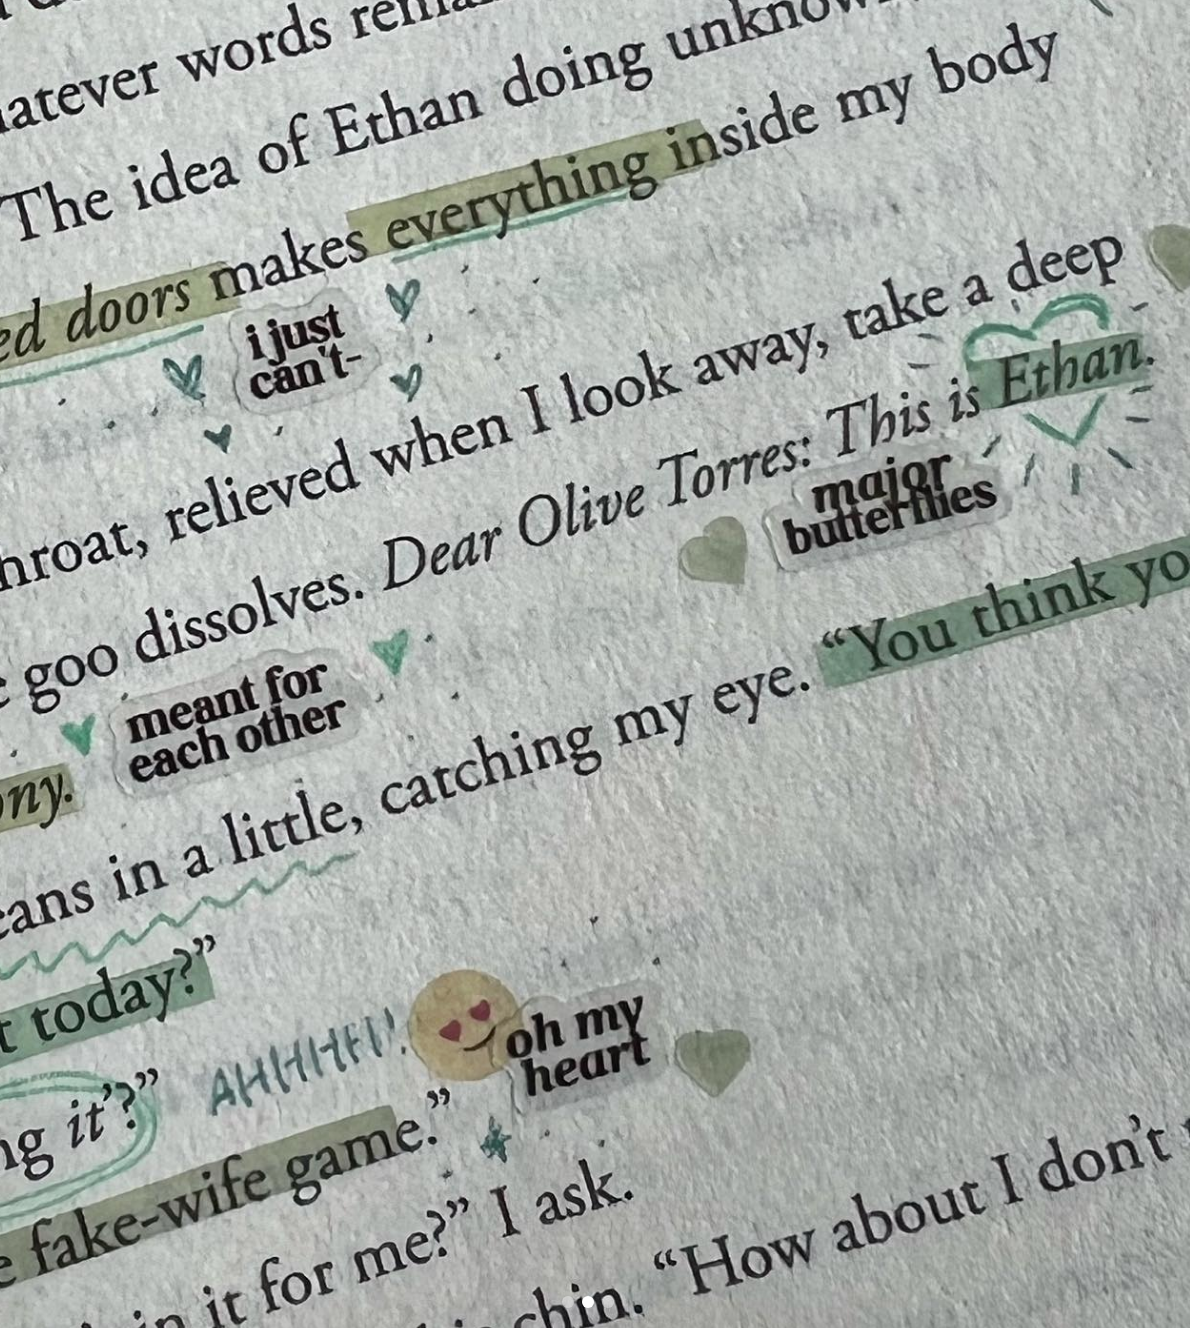 whatever words
The idea of Ethan doing
makes everything inside my body
doors
i just
can't-
relieved when I look away, take a deep
goo dissolves. Dear Olive Torres: This is Ethan.
major
butterflies
meant for
each other
in a little, catching my eye. "You think
today?"
it'?" AHHHH!
oh my
heart
fake-wife game."
in it for me?" I ask.
chin. "How about I don't